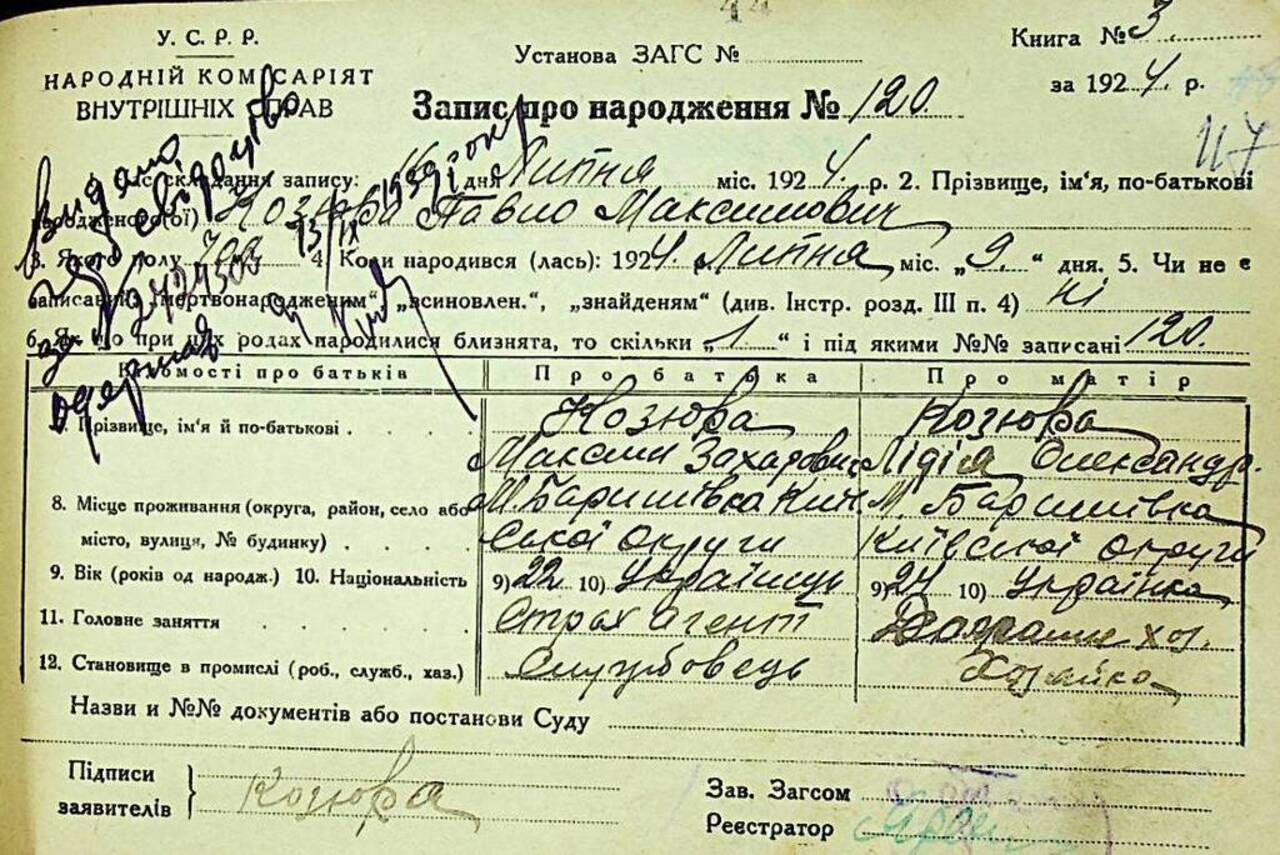 44
У. С. Р. Р.
НАРОДНІЙ КОМІСАРІЯТ
ВНУТРІШНІХ СПРАВ
Установа ЗАГС №
Книга № 3
за 1924 р.
Запис про народження № 120.
117
складання запису: дня Липня міс. 1924 р. 2. Прізвище, ім'я, по-батькові
народженого(ої) Козюра Павло Максимович
3. Якого полу чол 4. Коли народився (лась): 1924 р. Липня міс. „9.“ дня. 5. Чи не є
записаний „мертвонародженим“, „всиновлен.“, „знайденям“ (див. Інстр. розд. III п. 4) ні
6. Як що при цих родах народилися близнята, то скільки „1“ і під якими №№ записані 120.
Видано
свідоцтво
одержав
Відомості про батьків Про батька Про матір
7. Прізвище, ім'я й по-батькові Козюра Козюра
Максим Захарович Лідія Олександр.
8. Місце проживання (округа, район, село або М. Баришівка Киї М. Баришівка
місто, вулиця, № будинку) ської округи Київської округи
9. Вік (років од народж.) 10. Національність 9) 22 10) Українець 9) 24 10) Українка
11. Головне заняття Страх агент Домашн хоз.
12. Становище в промислі (роб., служб., хаз.) Службовець Хозяйка
Назви и №№ документів або постанови Суду
Підписи
заявителів Козюра
Зав. Загсом
Реєстратор